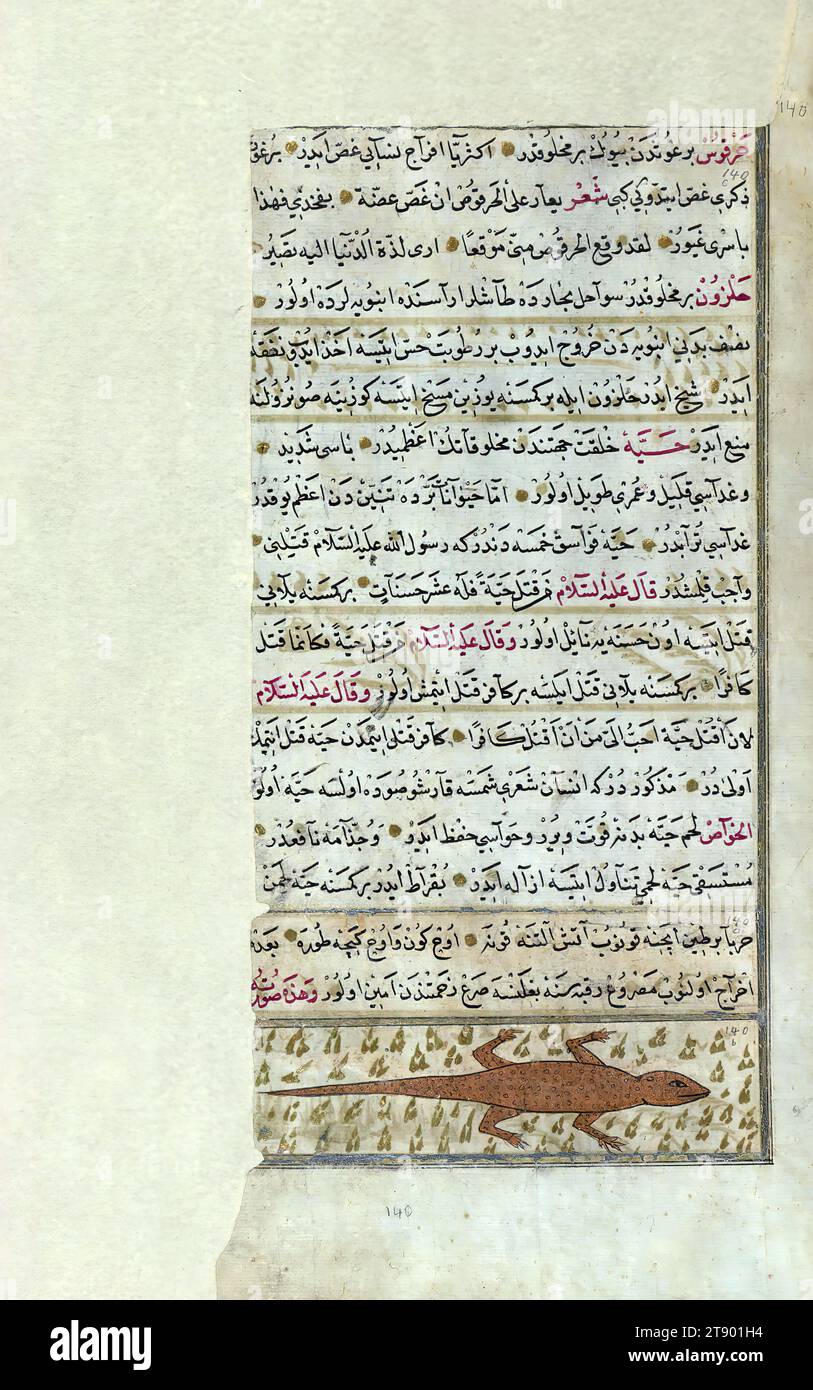 140
حرقوص برغوثدن بیوك بر مخلوقدر اکثریا افراج نسایی عض ایدر برغو
140
ذکری عض ایتدوکی کبی شعر یعار علی الحرقوص ان عض عضة بفخذی فهذا
یا سری غیور لقد وقع الحرقوص منی موقعا اری لذة الدنیا الیه تصیر
حلزون بر مخلوقدر سواحل بحارده طاشلر اراسنده انبوبه لرده اولور
نصف بدنی انبوبه دن خروج ایدوب بر رطوبت حس ایتسه اخذ ایدوب
ایدر حلزون ایله بر کمسنه یوزین مسح ایتسه کوزینه
منع ایدر حیه خلقت جهتندن مخلوقاتك اعظمیدر باسی شدید
وغداسی قلیل وعمری طویل اولور اما حیوانات برده تنین دن اعظم یوقدر
غداسی ترابدر حیه فواسق خمسه دندر که رسول الله علیه السلام قتلنی
واجب قلمشدر قال علیه السلام من قتل حیة فله عشر حسنات بر کمسنه یلانی
قتل ایتسه اون حسنه یه نائل اولور وقال علیه السلام من قتل حیة فکانما قتل
کافرا بر کمسنه یلانی قتل ایلسه بر کافر قتل ایتمش اولور وقال علیه السلام
لان أقتل حیة احب الی من أن أقتل کافرا کافر قتلی ایتمدن حیه قتل ایتمك
اولی در مذکور در که انسان شعری شمسه قارشو صوده اولسه حیه اولور
الخواص لحم حیه بدنه قوت ویرر وحواسی حفظ ایدر وجذامه نافعدر
مستسقی حیه لحمی تناول ایتسه ازاله ایدر بقراط ایدر بر کمسنه حیه لحمن
140
حربا بر طین ایچنه قونوب آتش التنه قونه اوچ کون واوچ کیجه طوره بعده
اخراج اولنوب مصروع رقبه سنه بغلنسه صرع زحمتندن امین اولور وهذه صورته
140
140
alamy
Image ID: 2T901H4
www.alamy.com